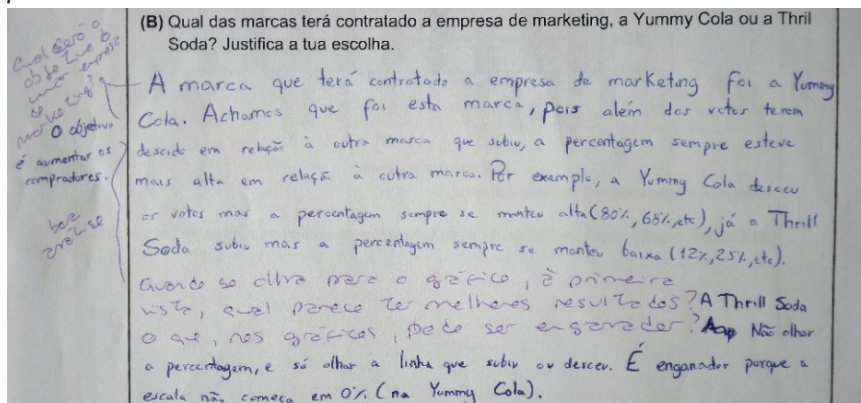 (B) Qual das marcas terá contratado a empresa de marketing, a Yummy Cola ou a Thril
Soda? Justifica a tua escolha.
Qual será o
objetivo
uma empresa
de
marketing?
O objetivo
é aumentar os
compradores.
boa
análise
A marca que terá contratado a empresa de marketing foi a Yummy
Cola. Achamos que foi esta marca, pois além dos votos terem
descido em relação à outra marca que subiu, a percentagem sempre esteve
mais alta em relação à outra marca. Por exemplo, a Yummy Cola desceu
os votos mas a percentagem sempre se manteu alta (80%, 68%, etc), já a Thrill
Soda subiu mas a percentagem sempre se manteu baixa (12%, 25%, etc).
Quando se olha para o gráfico, à primeira
vista, qual parece ter melhores resultados? A Thrill Soda
O que, nos gráficos, pode ser enganador? Não olhar
a percentagem, e só olhar a linha que subiu ou desceu. É enganador porque a
escala não começa em 0% (na Yummy Cola).